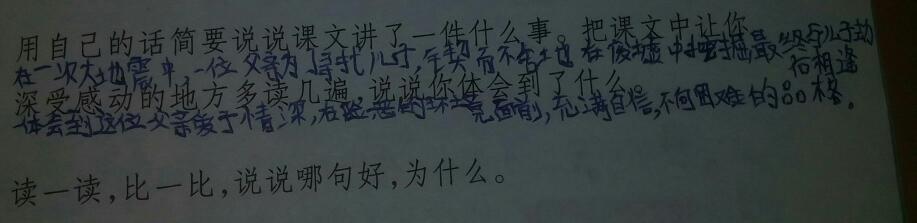 用自己的话简要说说课文讲了一件什么事。把课文中让你
在一次大地震中,一位父亲为了寻找儿子,手 而不舍地在废墟中挖掘最终与儿子劫
后相逢
深受感动的地方多读几遍,说说你体会到了什么。
体会到这位父亲爱子情深,在险恶的环境面前,充满自信,不向困难的品格。
读一读,比一比,说说哪句好,为什么。